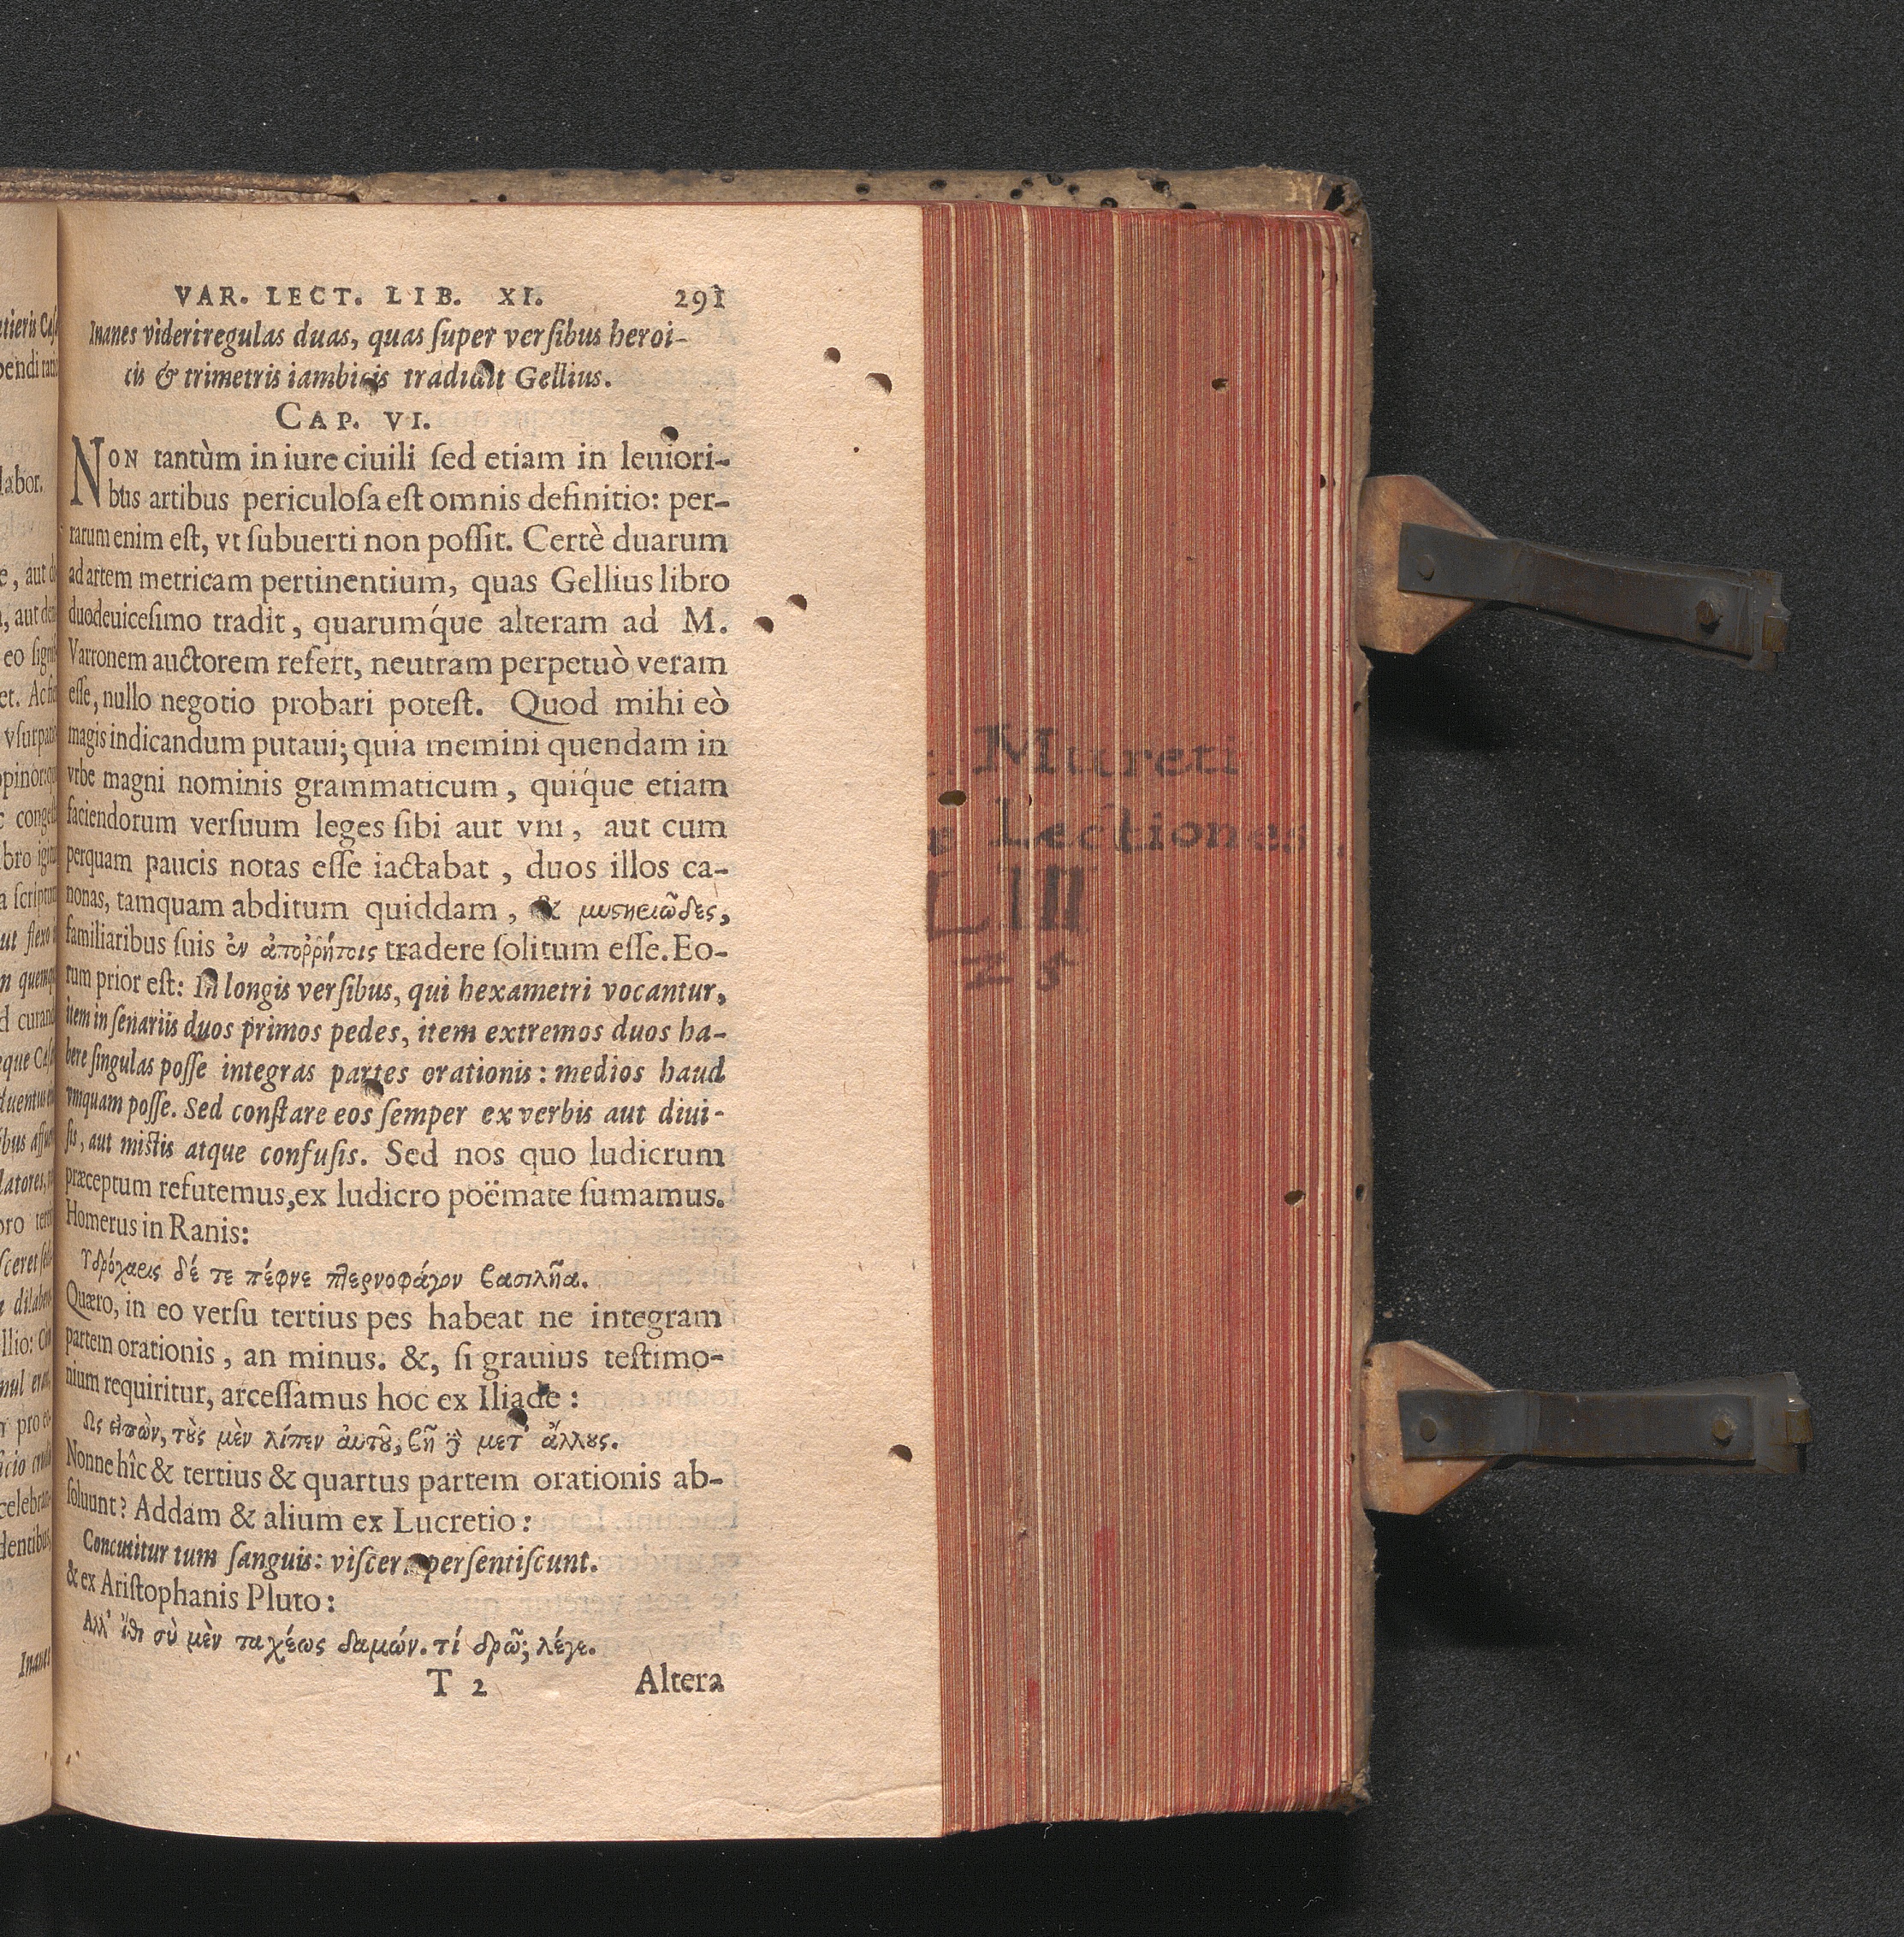 VAR. LECT. LIB. XI. 291
Inanes videri regulas duas, quas ſuper verſibus heroi-
cis & trimetris iambicis tradidit Gellius.
CAP. VI.
NON tantùm in iure ciuili ſed etiam in leuiori-
bus artibus periculoſa eſt omnis definitio: per-
rarum enim eſt, vt ſubuerti non poſſit. Certè duarum
ad artem metricam pertinentium, quas Gellius libro
duodeuiceſimo tradit, quarumq́ue alteram ad M.
Varronem auctorem refert, neutram perpetuò veram
eſſe, nullo negotio probari poteſt. Quod mihi eò
magis indicandum putaui; quia memini quendam in
vrbe magni nominis grammaticum, quiq́ue etiam
faciendorum verſuum leges ſibi aut vni, aut cum
perquam paucis notas eſſe iactabat, duos illos ca-
nonas, tamquam abditum quiddam, & μυστηριῶδες,
familiaribus ſuis ἐν ἀποῤῥήτοις tradere ſolitum eſſe. Eo-
rum prior eſt: In longis verſibus, qui hexametri vocantur,
item in ſenariis duos primos pedes, item extremos duos ha-
bere ſingulas poſſe integras partes orationis: medios haud
vmquam poſſe. Sed conſtare eos ſemper ex verbis aut diui-
ſis, aut miſtis atque confuſis. Sed nos quo ludicrum
præceptum refutemus, ex ludicro poëmate ſumamus.
Homerus in Ranis:
Υδρόχαρις δέ τε πέφνε πτερνοφάγον βασιλῆα.
Quæro, in eo verſu tertius pes habeat ne integram
partem orationis, an minus. &, ſi grauius teſtimo-
nium requiritur, arceſſamus hoc ex Iliade:
Ως εἰπὼν, τοὺς μὲν λίπεν αὐτοῦ, βῆ δὲ μετ' ἄλλους.
Nonne hîc & tertius & quartus partem orationis ab-
ſoluunt? Addam & alium ex Lucretio:
Concutitur tum ſanguis: viſcera perſentiſcunt.
& ex Ariſtophanis Pluto:
Αλλ' ἴθι σὺ μὲν ταχέως δραμών. τί δρῶ; λέγε.
T 2 Altera
Mureti
Lectiones
LIII
25